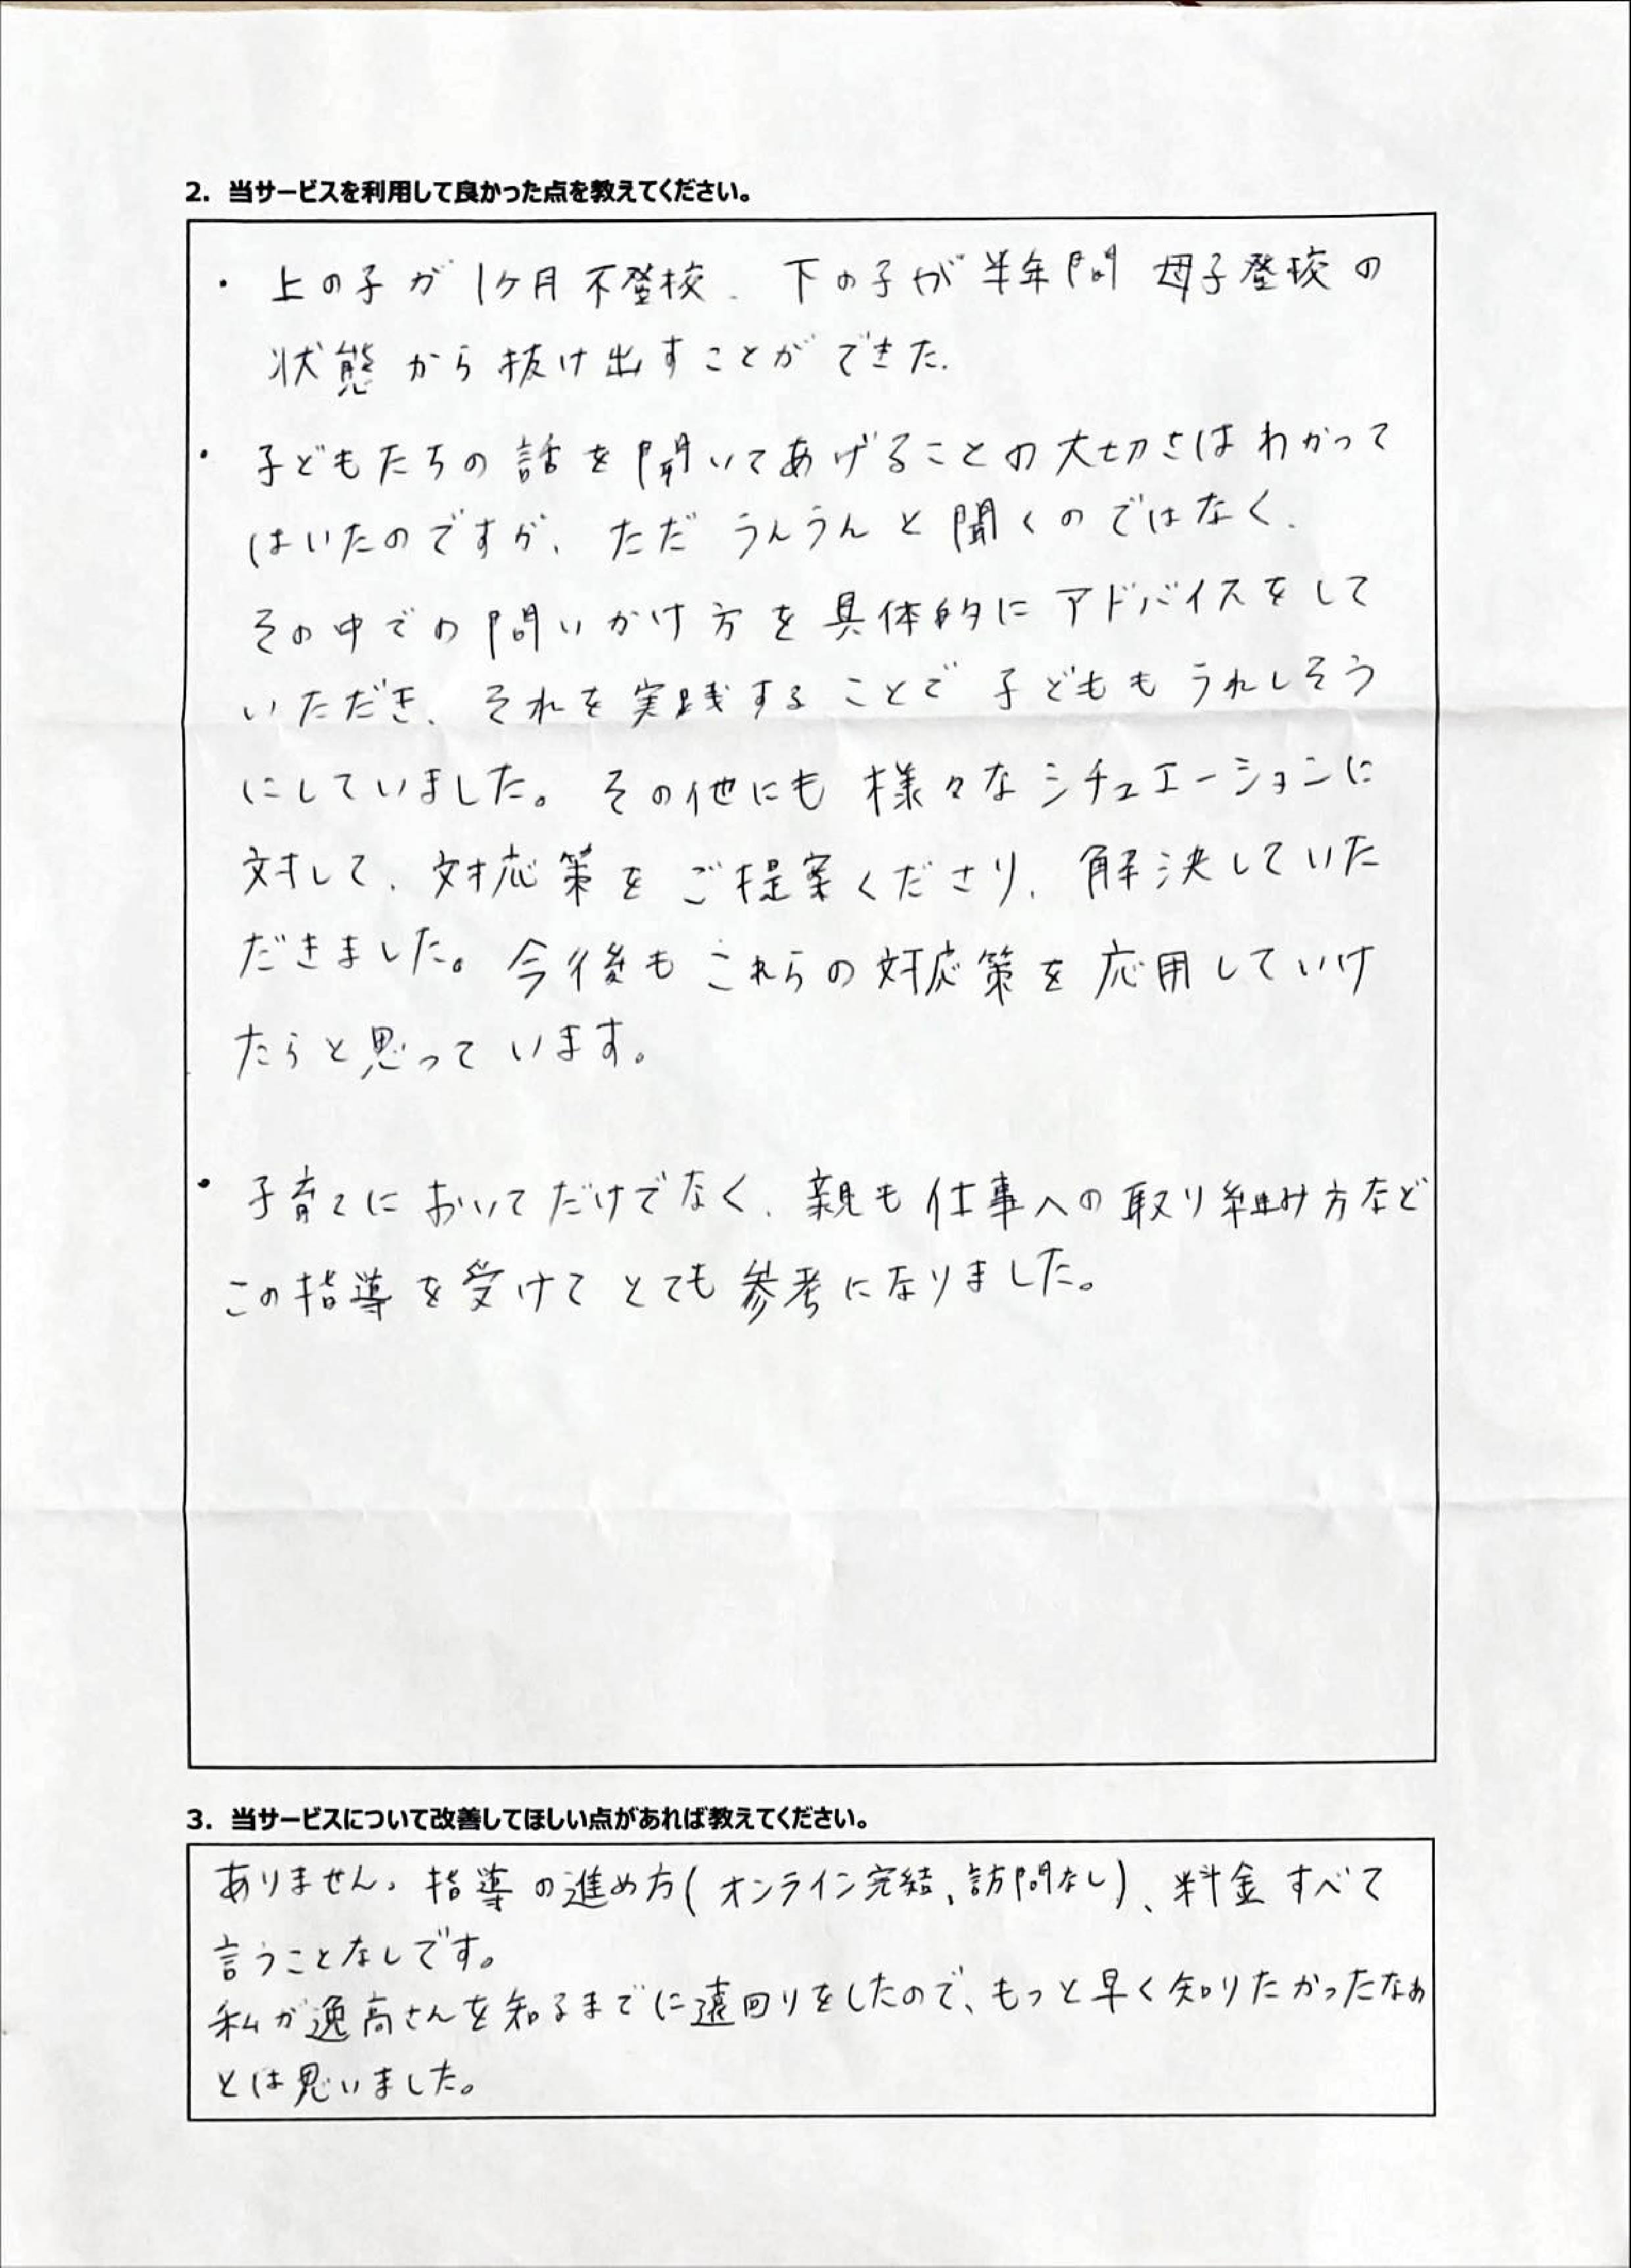 2. 当サービスを利用して良かった点を教えてください。
・ 上の子が1ヶ月不登校、下の子が半年間 母子登校の
状態から抜け出すことができた。
・ 子どもたちの話を聞いてあげることの大切さはわかって
はいたのですが、ただ うんうんと聞くのではなく、
その中での問いかけ方を具体的にアドバイスをして
いただき、それを実践することで子どももうれしそう
にしていました。その他にも様々なシチュエーションに
対して、対応策をご提案くださり、解決していた
だきました。今後もこれらの対応策を応用していけ
たらと思っています。
・ 子育てにおいてだけでなく、親も仕事への取り組み方など
この指導を受けてとても参考になりました。
3. 当サービスについて改善してほしい点があれば教えてください。
ありません。指導の進め方(オンライン完結、訪問なし)、料金すべて
言うことなしです。
私が逸高さんを知るまでに遠回りをしたので、もっと早く知りたかったなぁ
とは思いました。